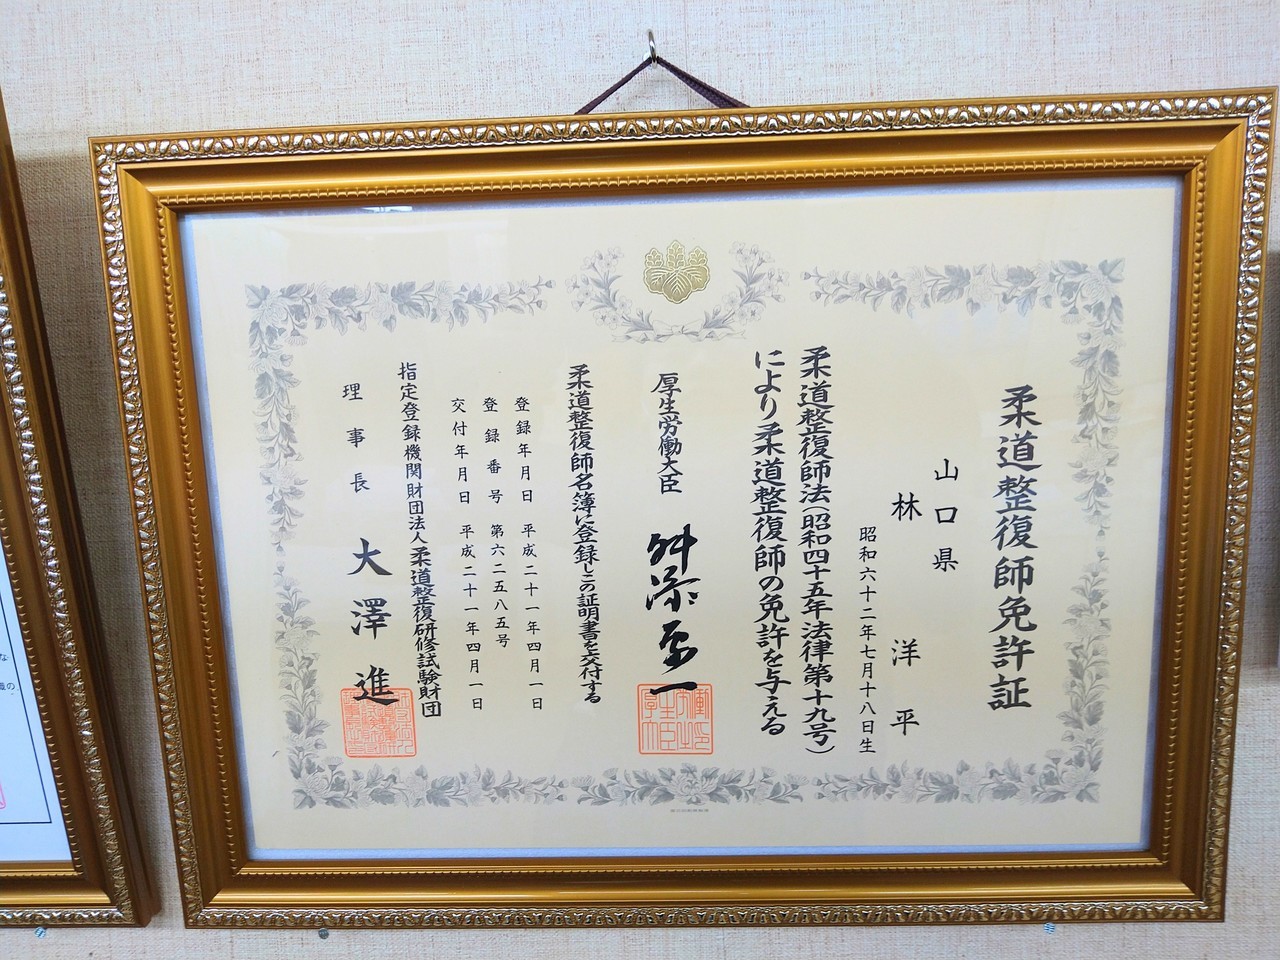 柔道整復師免許証
山口県
林洋平
昭和六十二年七月十八日生
柔道整復師法(昭和四十五年法律第十九号)
により柔道整復師の免許を与える
厚生労働大臣 舛添要一
柔道整復師名簿に登録しこの証明書を交付する
登録年月日 平成二十一年四月一日
登録番号 第六二五八五号
交付年月日 平成二十一年四月一日
指定登録機関財団法人柔道整復研修試験財団
理事長 大澤進
な
職の